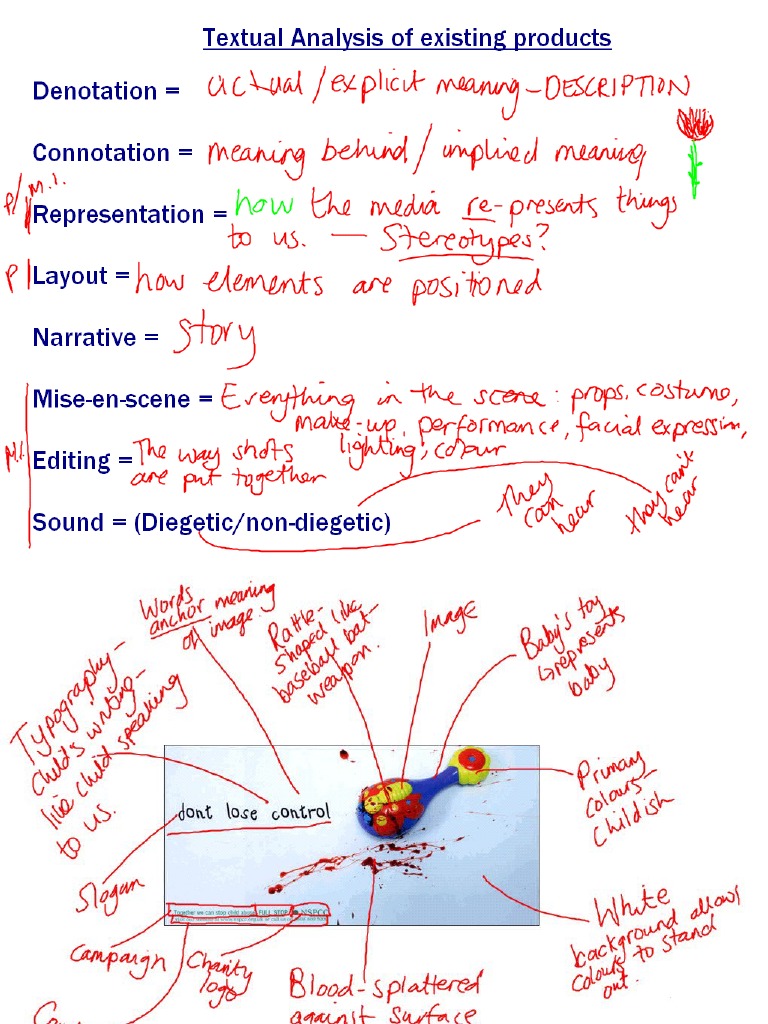 Textual Analysis of existing products
Denotation = actual/explicit meaning - DESCRIPTION
Connotation = meaning behind/implied meaning
P/ M.I.
Representation = how the media re-presents things
to us. — Stereotypes?
P Layout = how elements are positioned
Narrative = story
Mise-en-scene = Everything in the scene: props, costume,
make-up, performance, facial expression,
lighting, colour
M.I.
Editing = The way shots
are put together
Sound = (Diegetic/non-diegetic)
They
can
hear
they can't
hear
Words
anchor meaning
of image.
Rattle-
shaped like
baseball bat-
weapon.
Image
Baby's toy
represents
baby
Typography-
child's writing-
like child speaking
to us.
dont lose control
Primary
colours-
childish
Slogan
Together we can stop child abuse. FULL STOP NSPCC
Campaign
Charity
logo
Blood-splattered
against surface
White
background allows
colours to stand
out.